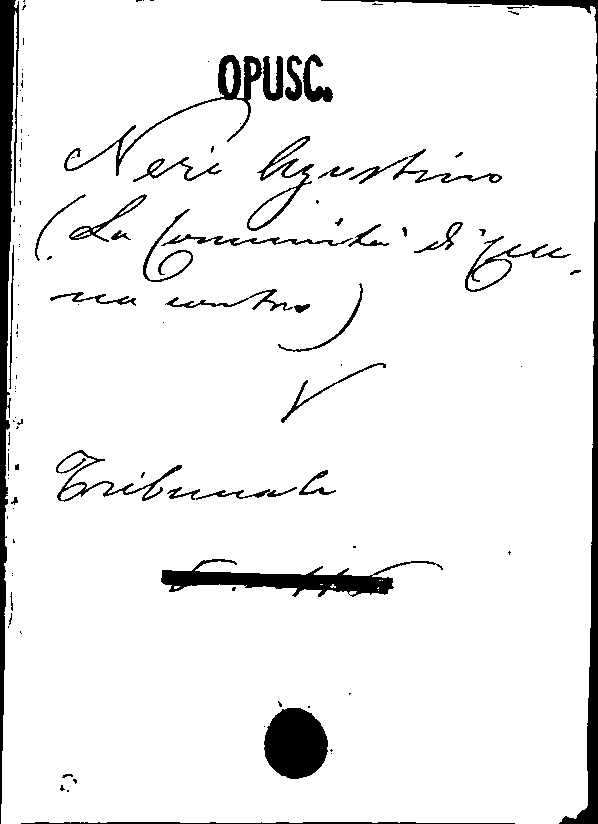 OPUSC.
Neri Agostino
(La Comunità di
contro)
V
Tribunale